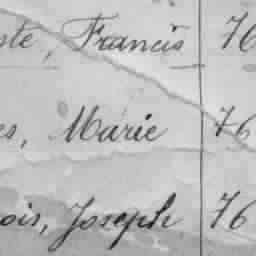 ste, Francis 76
es, Marie 76
ois, Joseph 76